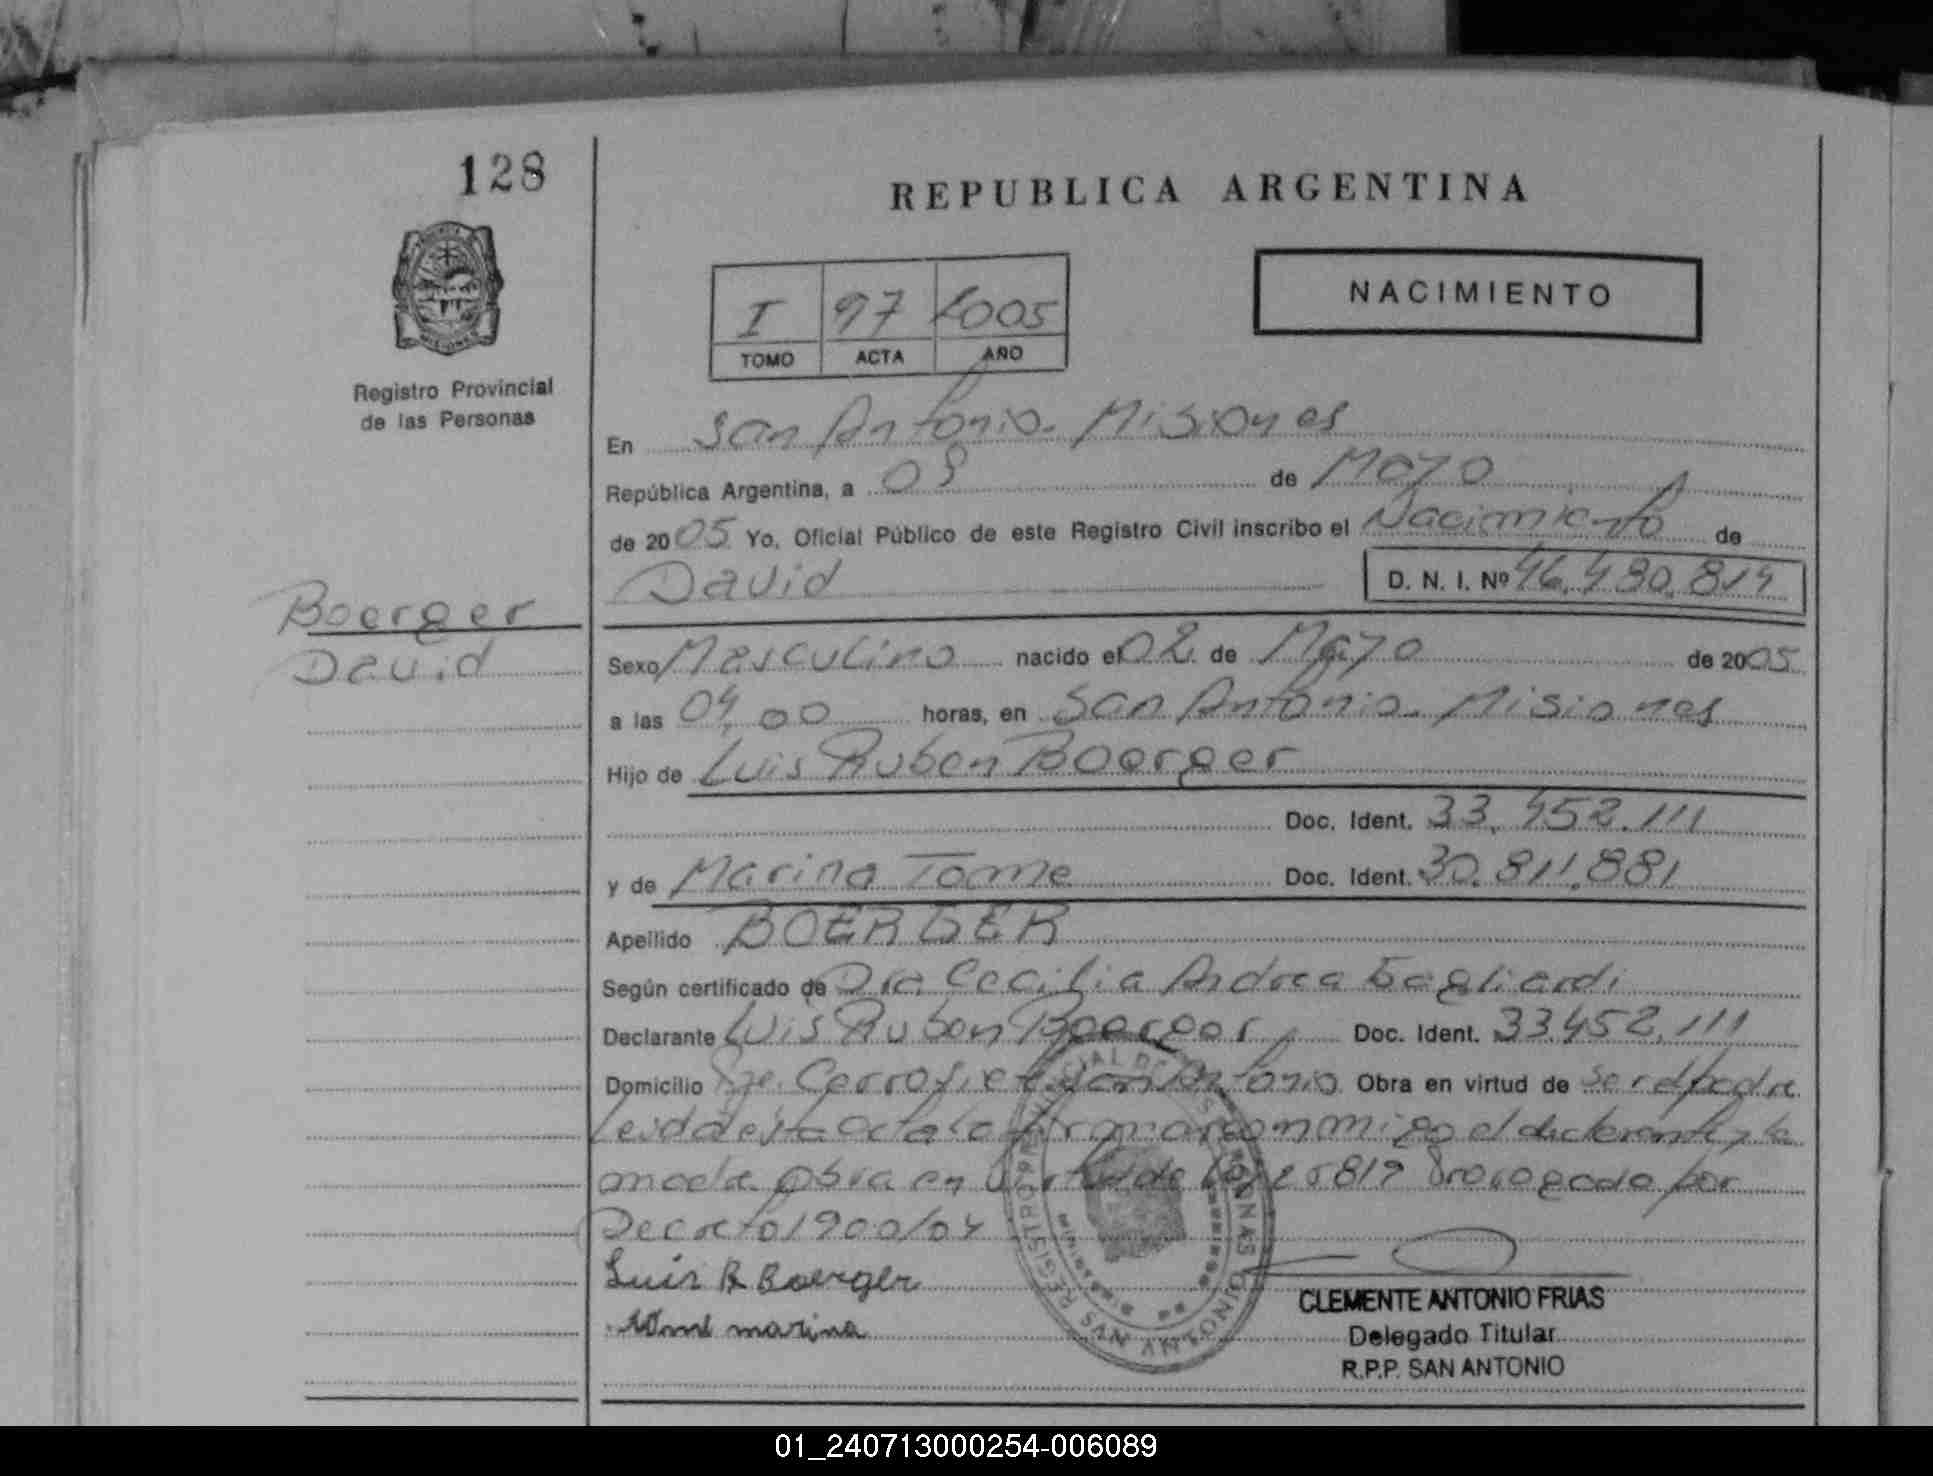 128
REPUBLICA ARGENTINA
NACIMIENTO
I 97 2005
TOMO ACTA AÑO
Registro Provincial
de las Personas
En San Antonio. Misiones
República Argentina, a 09 de Mayo
de 2005 Yo, Oficial Público de este Registro Civil inscribo el Nacimiento de
David D. N. I. Nº 46.480.814
Boerger
David
Sexo Masculino nacido el 02 de Mayo de 2005
a las 04,00 horas, en San Antonio. Misiones
Hijo de Luis Ruben Boerger
Doc. Ident. 33.452.111
y de Marina Tome Doc. Ident. 30.811.881
Apellido BOERGER
Según certificado de Dra Cecilia Andrea Gagliardi
Declarante Luis Ruben Boerger Doc. Ident. 33.452.111
Domicilio San Antonio Obra en virtud de ser el padre
Leida esta acta la firman conmigo el declarante y la
madre Obra en virtud de Ley 25819 Prorogado por
Decreto 1900/04
Luis R Boerger
Tomé marina
CLEMENTE ANTONIO FRIAS
Delegado Titular
R.P.P. SAN ANTONIO
01_240713000254-006089